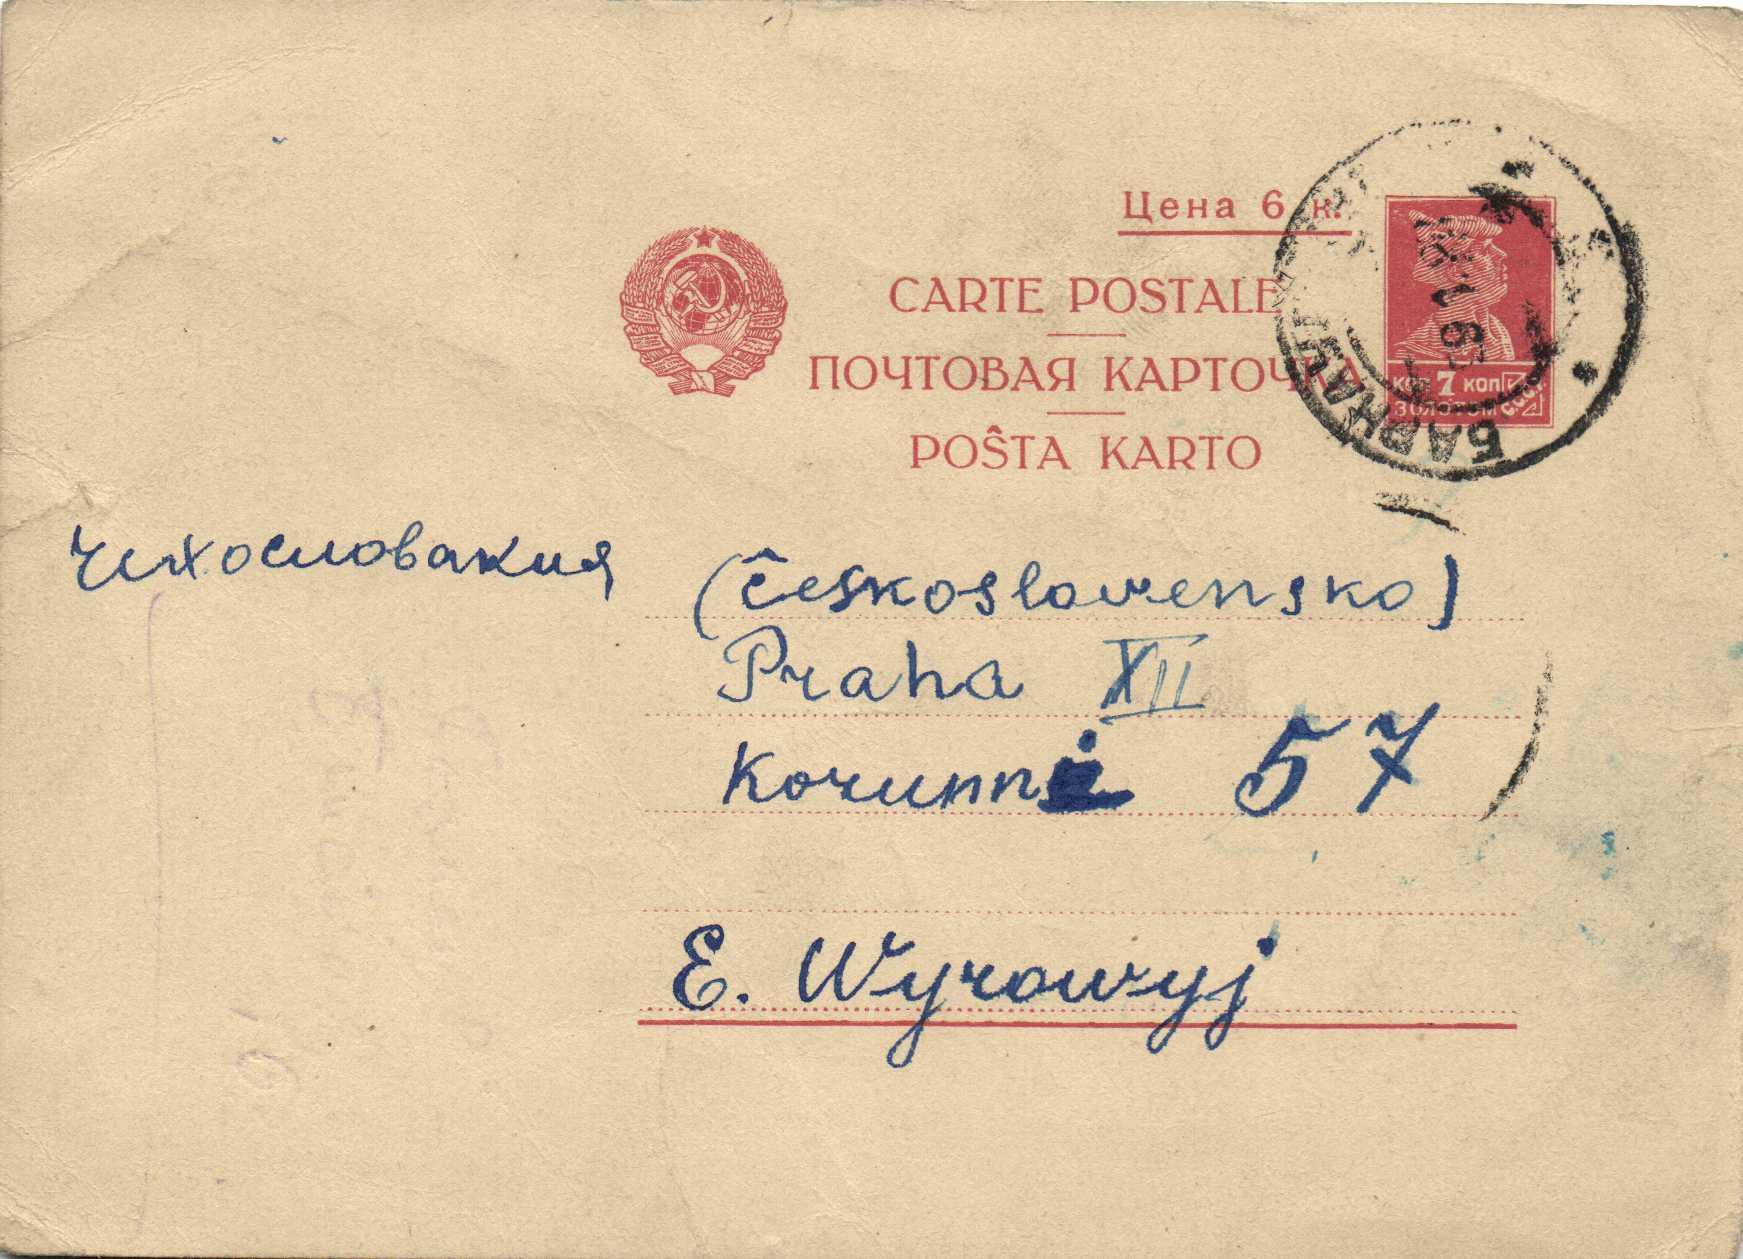 Цена 6 к.
CARTE POSTALE
ПОЧТОВАЯ КАРТОЧКА
POŜTA KARTO
КОП 7 КОП
ЗОЛОТОМ СССР
БАРНАУЛ
Чихословакия
(Ĉeskoslovensko)
Praha XII
Korunni 57
E. Wyrowyj